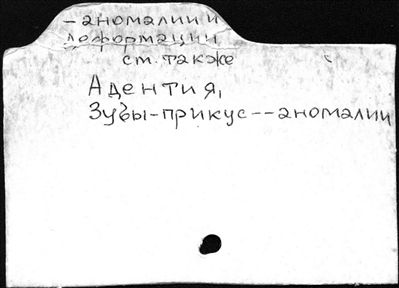 – аномалии и
деформации
см. также
Адентия,
Зубы-прикус--аномалии